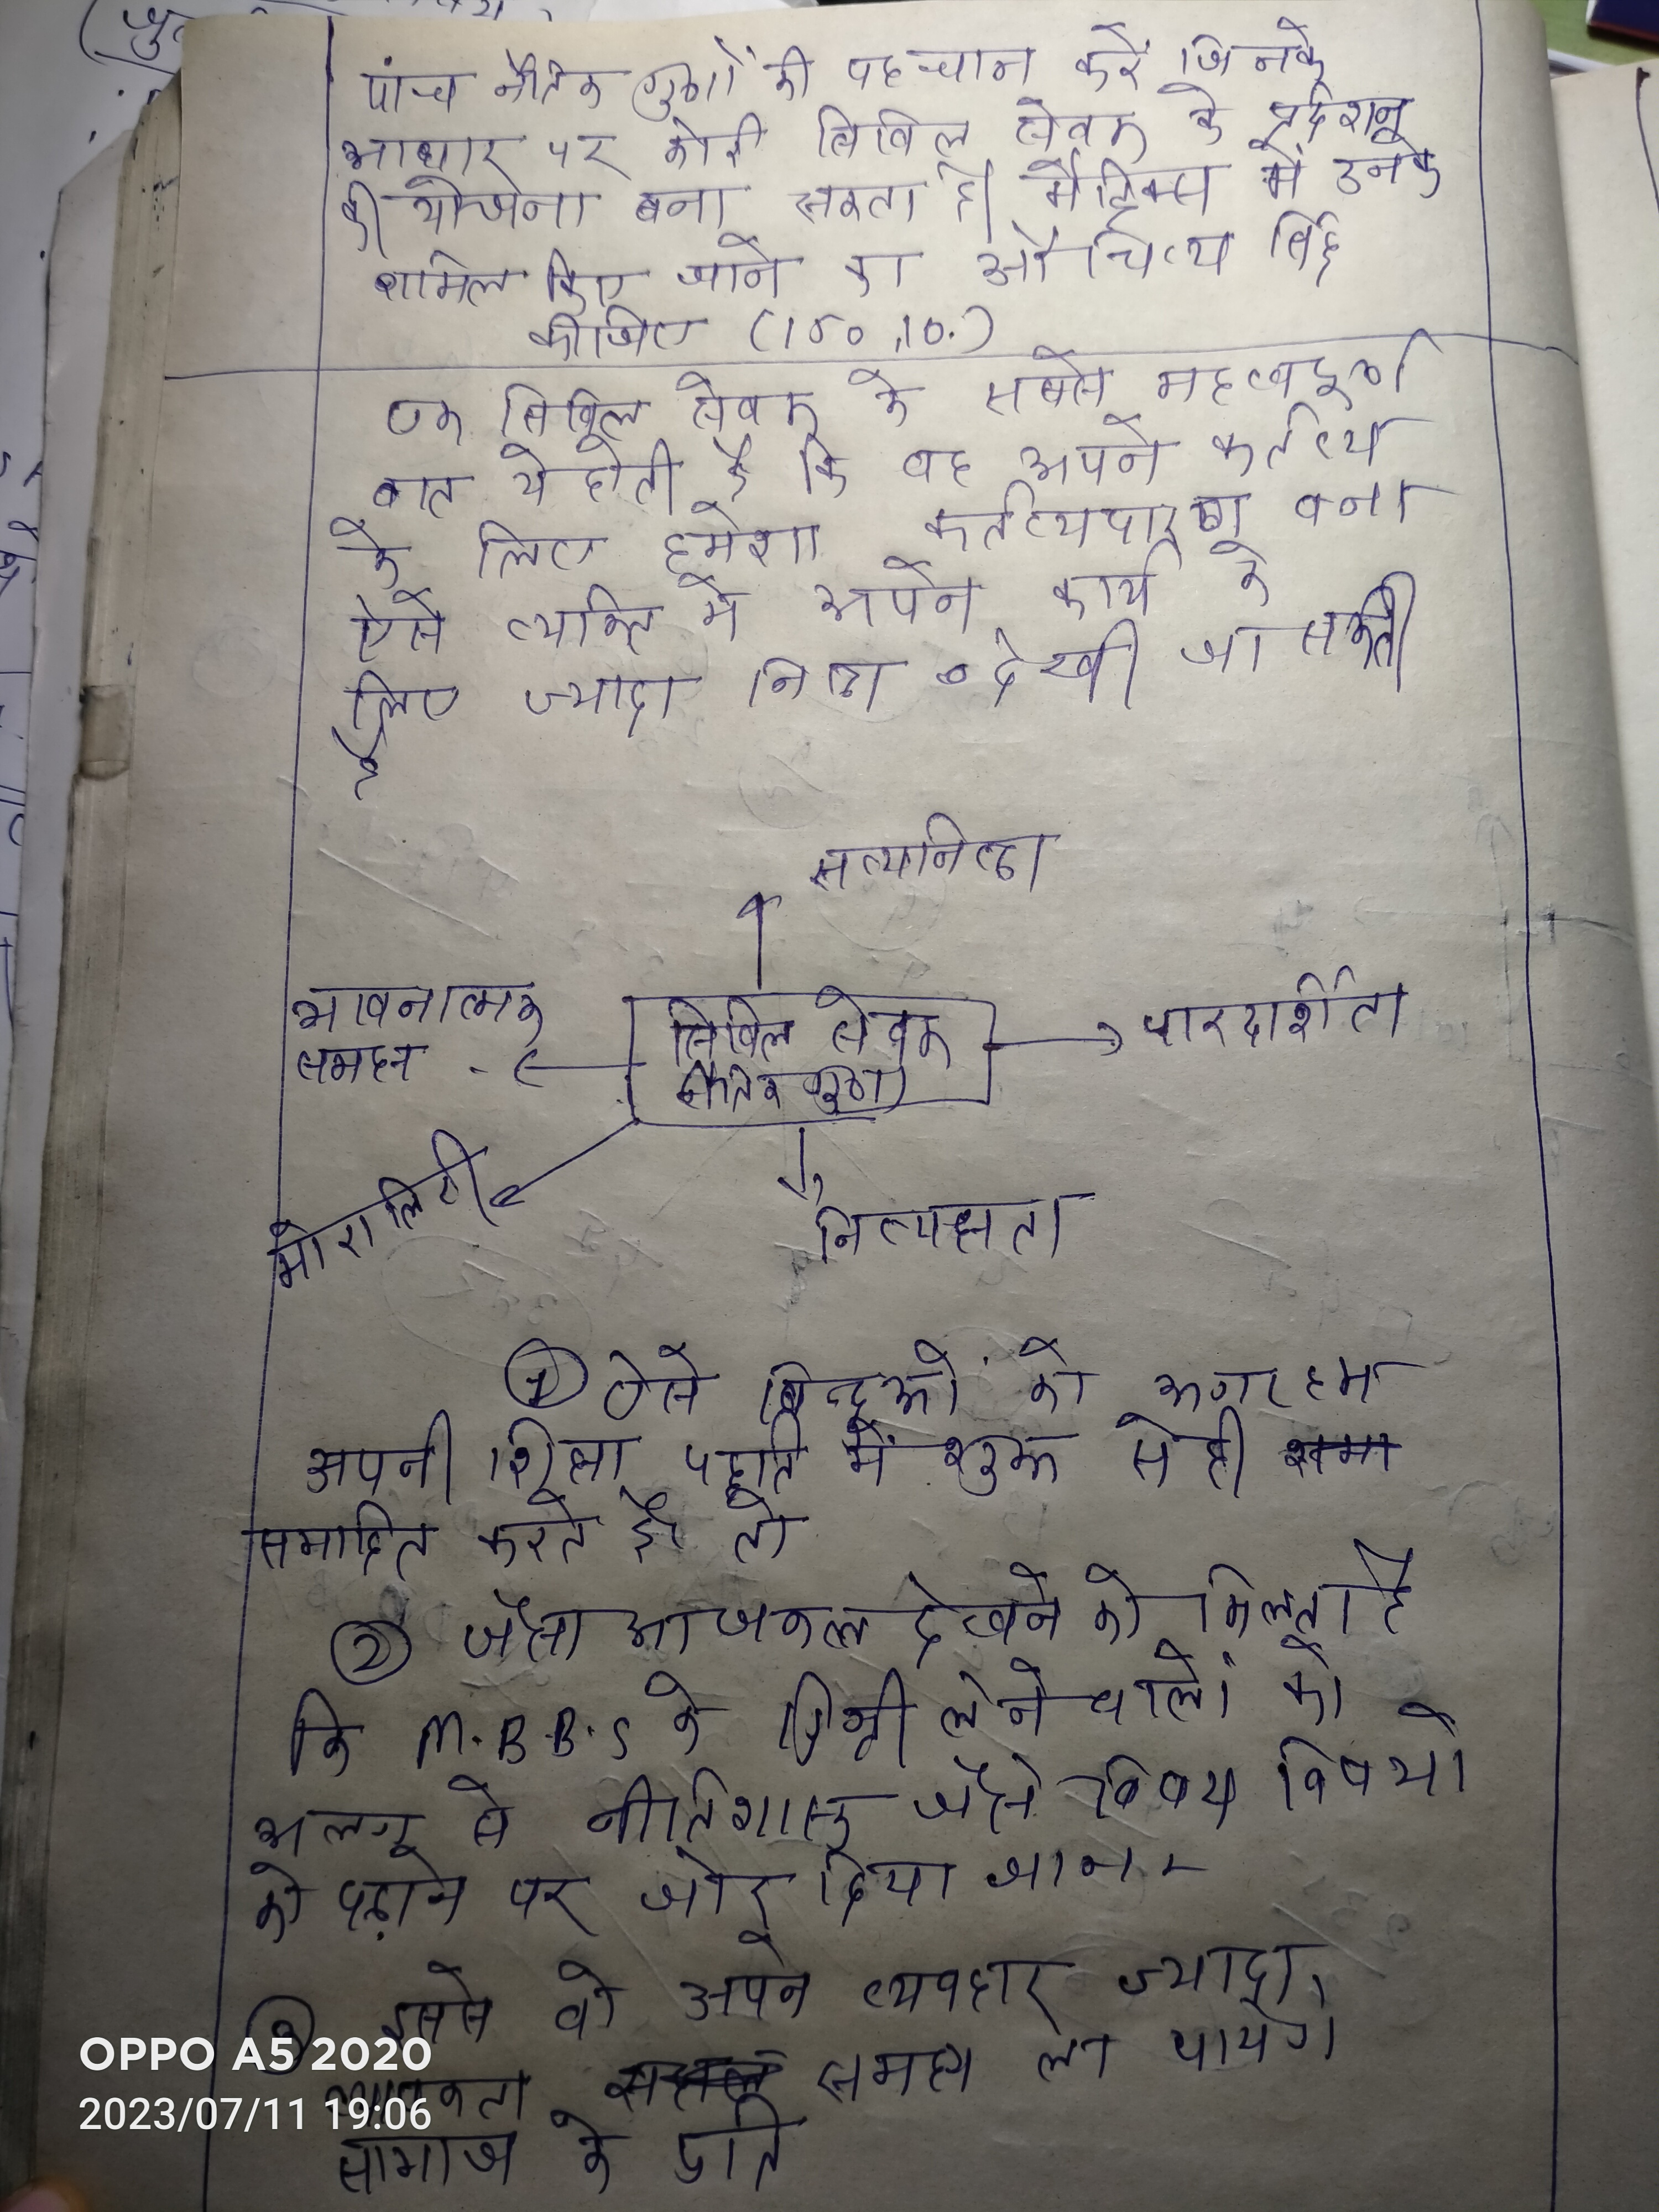 पांच नैतिक गुणों की पहचान करें जिनके
आधार पर कोई सिविल सेवक के प्रदर्शन
की योजना बना सकता है। मैट्रिक्स में उनके
शामिल किए जाने का औचित्य सिद्ध
कीजिए (150, 10.)
एक सिविल सेवक के सबसे महत्वपूर्ण
बात ये होती है कि वह अपने कर्तव्य
के लिए हमेशा कर्तव्यपारण बना
ऐसे व्यक्ति में अपने कार्य के
लिए ज्यादा निष्ठा देखी जा सकती
है
सत्यनिष्ठा
भावनात्मक
समझ
सिविल सेवक
नैतिक गुण
पारदर्शिता
मोरालिटी
निष्पक्षता
① ऐसे बिन्दुओं को अगर हम
अपनी शिक्षा पद्दति में शुरू से ही
समाहित करते है तो
② जैसा आजकल देखने को मिलता है
कि M.B.B.S के डिग्री लेने वालों को
अलग से नीतिशास्त्र जैसे विषय विषयो
को पढ़ाने पर जोर दिया जाना
③ इससे वो अपने व्यवहार ज्यादा
समझ ला पायेगे
सामाज के प्रति
OPPO A5 2020
2023/07/11 19:06